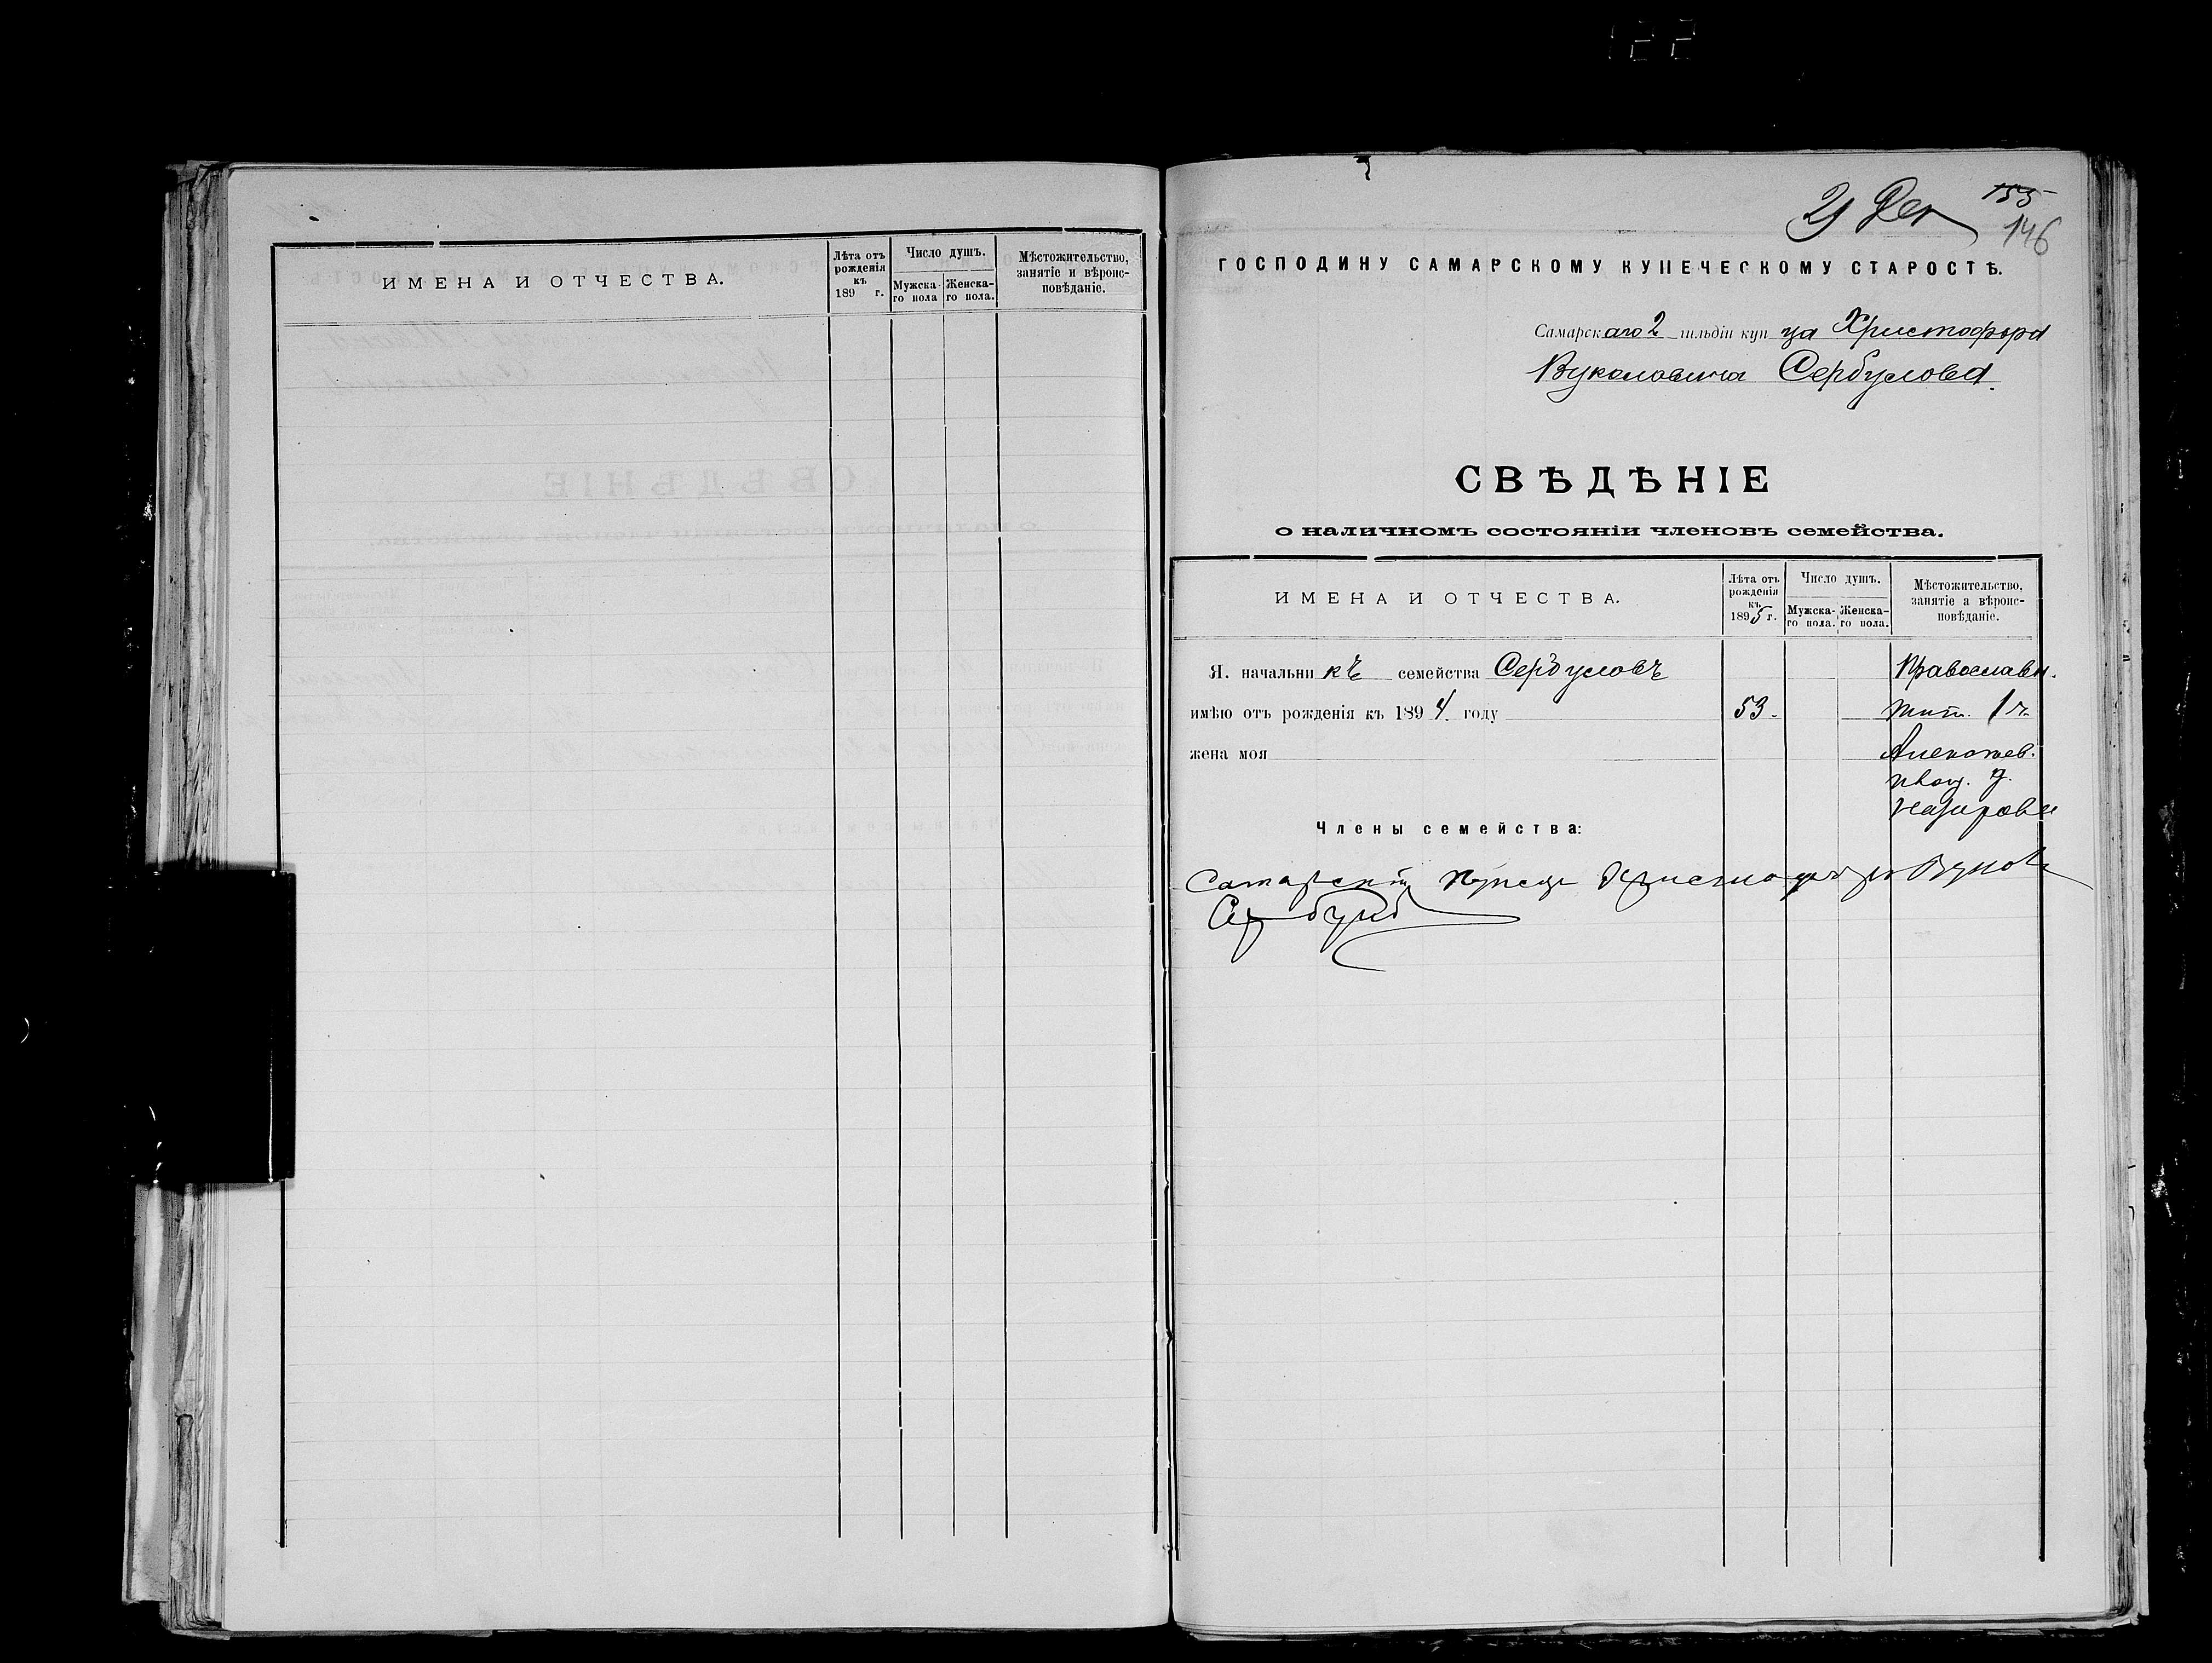 122
ИМЕНА И ОТЧЕСТВА.
Лѣта отъ рожденія къ 189 г.
Число душъ.
Мужска-го пола
Женска-го пола.
Мѣстожительство, занятіе и вѣроис-повѣданіе.
21 Дек
155
146
ГОСПОДИНУ САМАРСКОМУ КУПЕЧЕСКОМУ СТАРОСТѢ.
Самарскаго 2 гильдіи купца Христофора
Вуколовича Сербулова.
СВѢДѢНІЕ
о наличномъ состояніи членовъ семейства.
ИМЕНА И ОТЧЕСТВА.
Лѣта отъ рожденія къ 1895 г.
Число душъ.
Мужска-го пола.
Женска-го пола.
Мѣстожительство, занятіе а вѣроис-повѣданіе.
Я. начальникъ семейства Сербуловъ
Православн.
имѣю отъ рожденія къ 1894 году 53.
жит. 1 ч.
жена моя
Члены семейства:
Самарскій Купецъ Христофоръ Вуков
Сербулов